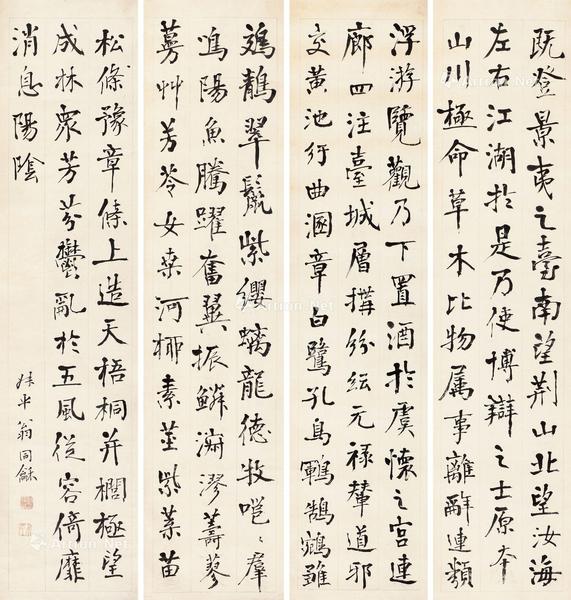 既登景夷之臺南望荊山北望汝海
左右江湖於是乃使博辯之士原本
山川極命草木比物属事離辭連類
浮游覽觀乃下置酒於虞懷之宮連
廊四注臺城層構紛紜元祿輦道邪
交黃池行曲溷章白鷺孔鳥鶤鵠鵷雛
鵁鶄翠鬣紫纓螭龍德牧嗈〻羣
鳴陽魚騰躍奮翼振鱗漃漻薵蓼
蔓艸芳苓女桑河柳素莖紫葉苗
松條豫章條上造天梧桐并櫚極望
成林眾芳芬鬱亂於五風從容倚靡
消息陽陰
叔平翁同龢